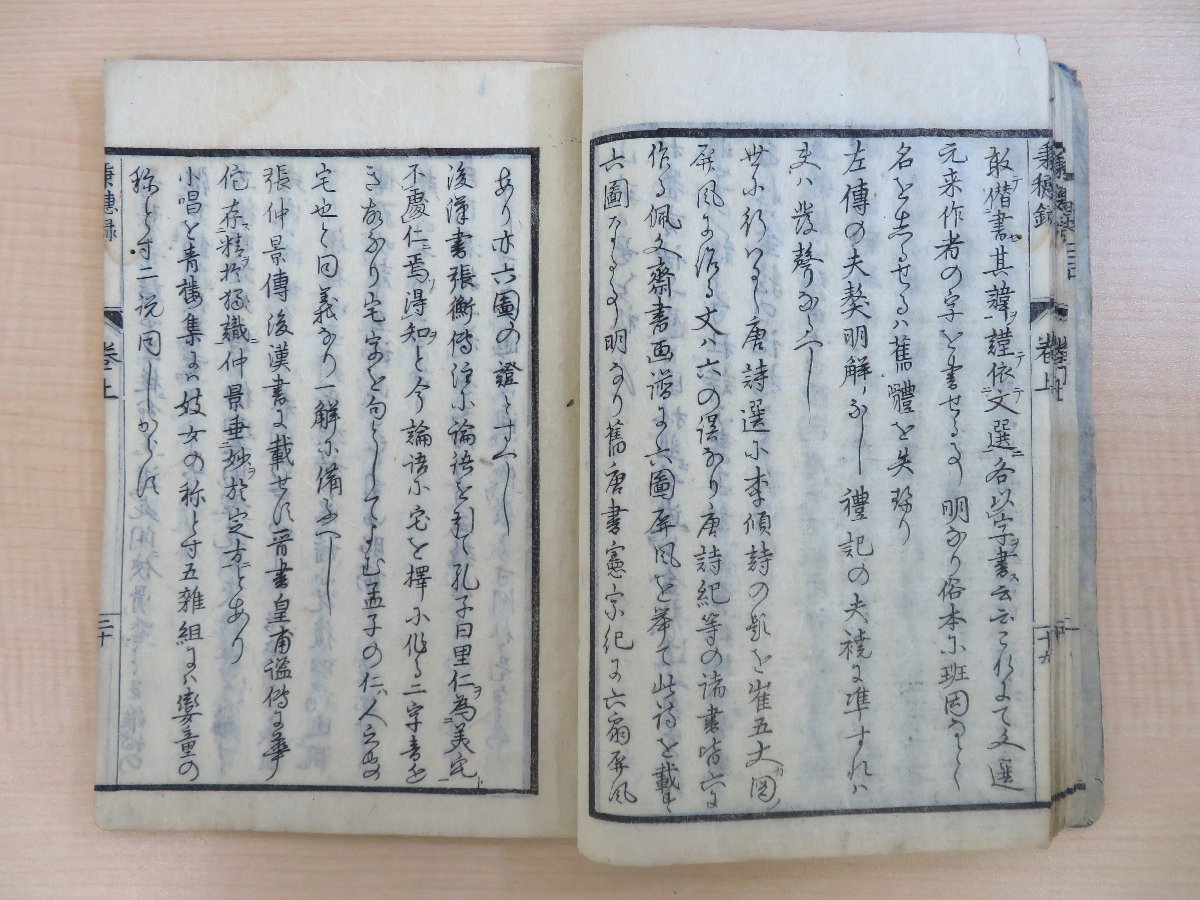 敢僭書其諱謹依文選各以字書云云これにて文選
元来作者の字を書せる事明なり俗本に班固などと
名をしるせるハ舊體を失へり
左傳の夫獒明解なし禮記の夫襓に準すれハ
夫ハ發聲なるへし
世に行はるゝ唐詩選に李頎詩の題を崔五丈圖
屏風に作る丈ハ六の誤なり唐詩紀等の諸書皆六に
作る佩文齋書画譜に六圖屏風を挙て此詩を載す
六圖なる事明なり舊唐書憲宗紀に六扇屏風
秉穂録 巻上 十九
あり亦六圖の證とすへし
後漢書張衡傳注に論語を引て孔子曰里仁為美宅
不處仁焉得知と今論語に宅を擇に作る二字音近
きなり宅字を句としてよむ孟子の仁人之安
宅也と同義なり一解に備ふへし
張仲景傳後漢書に載せす晋書皇甫謐傳に華
佗存精於獨識仲景垂妙於定方とあり
小唱を青樓集にハ妓女の称とす五雜組にハ孌童の
称とす二説同しからす
秉穂録 巻上 二十